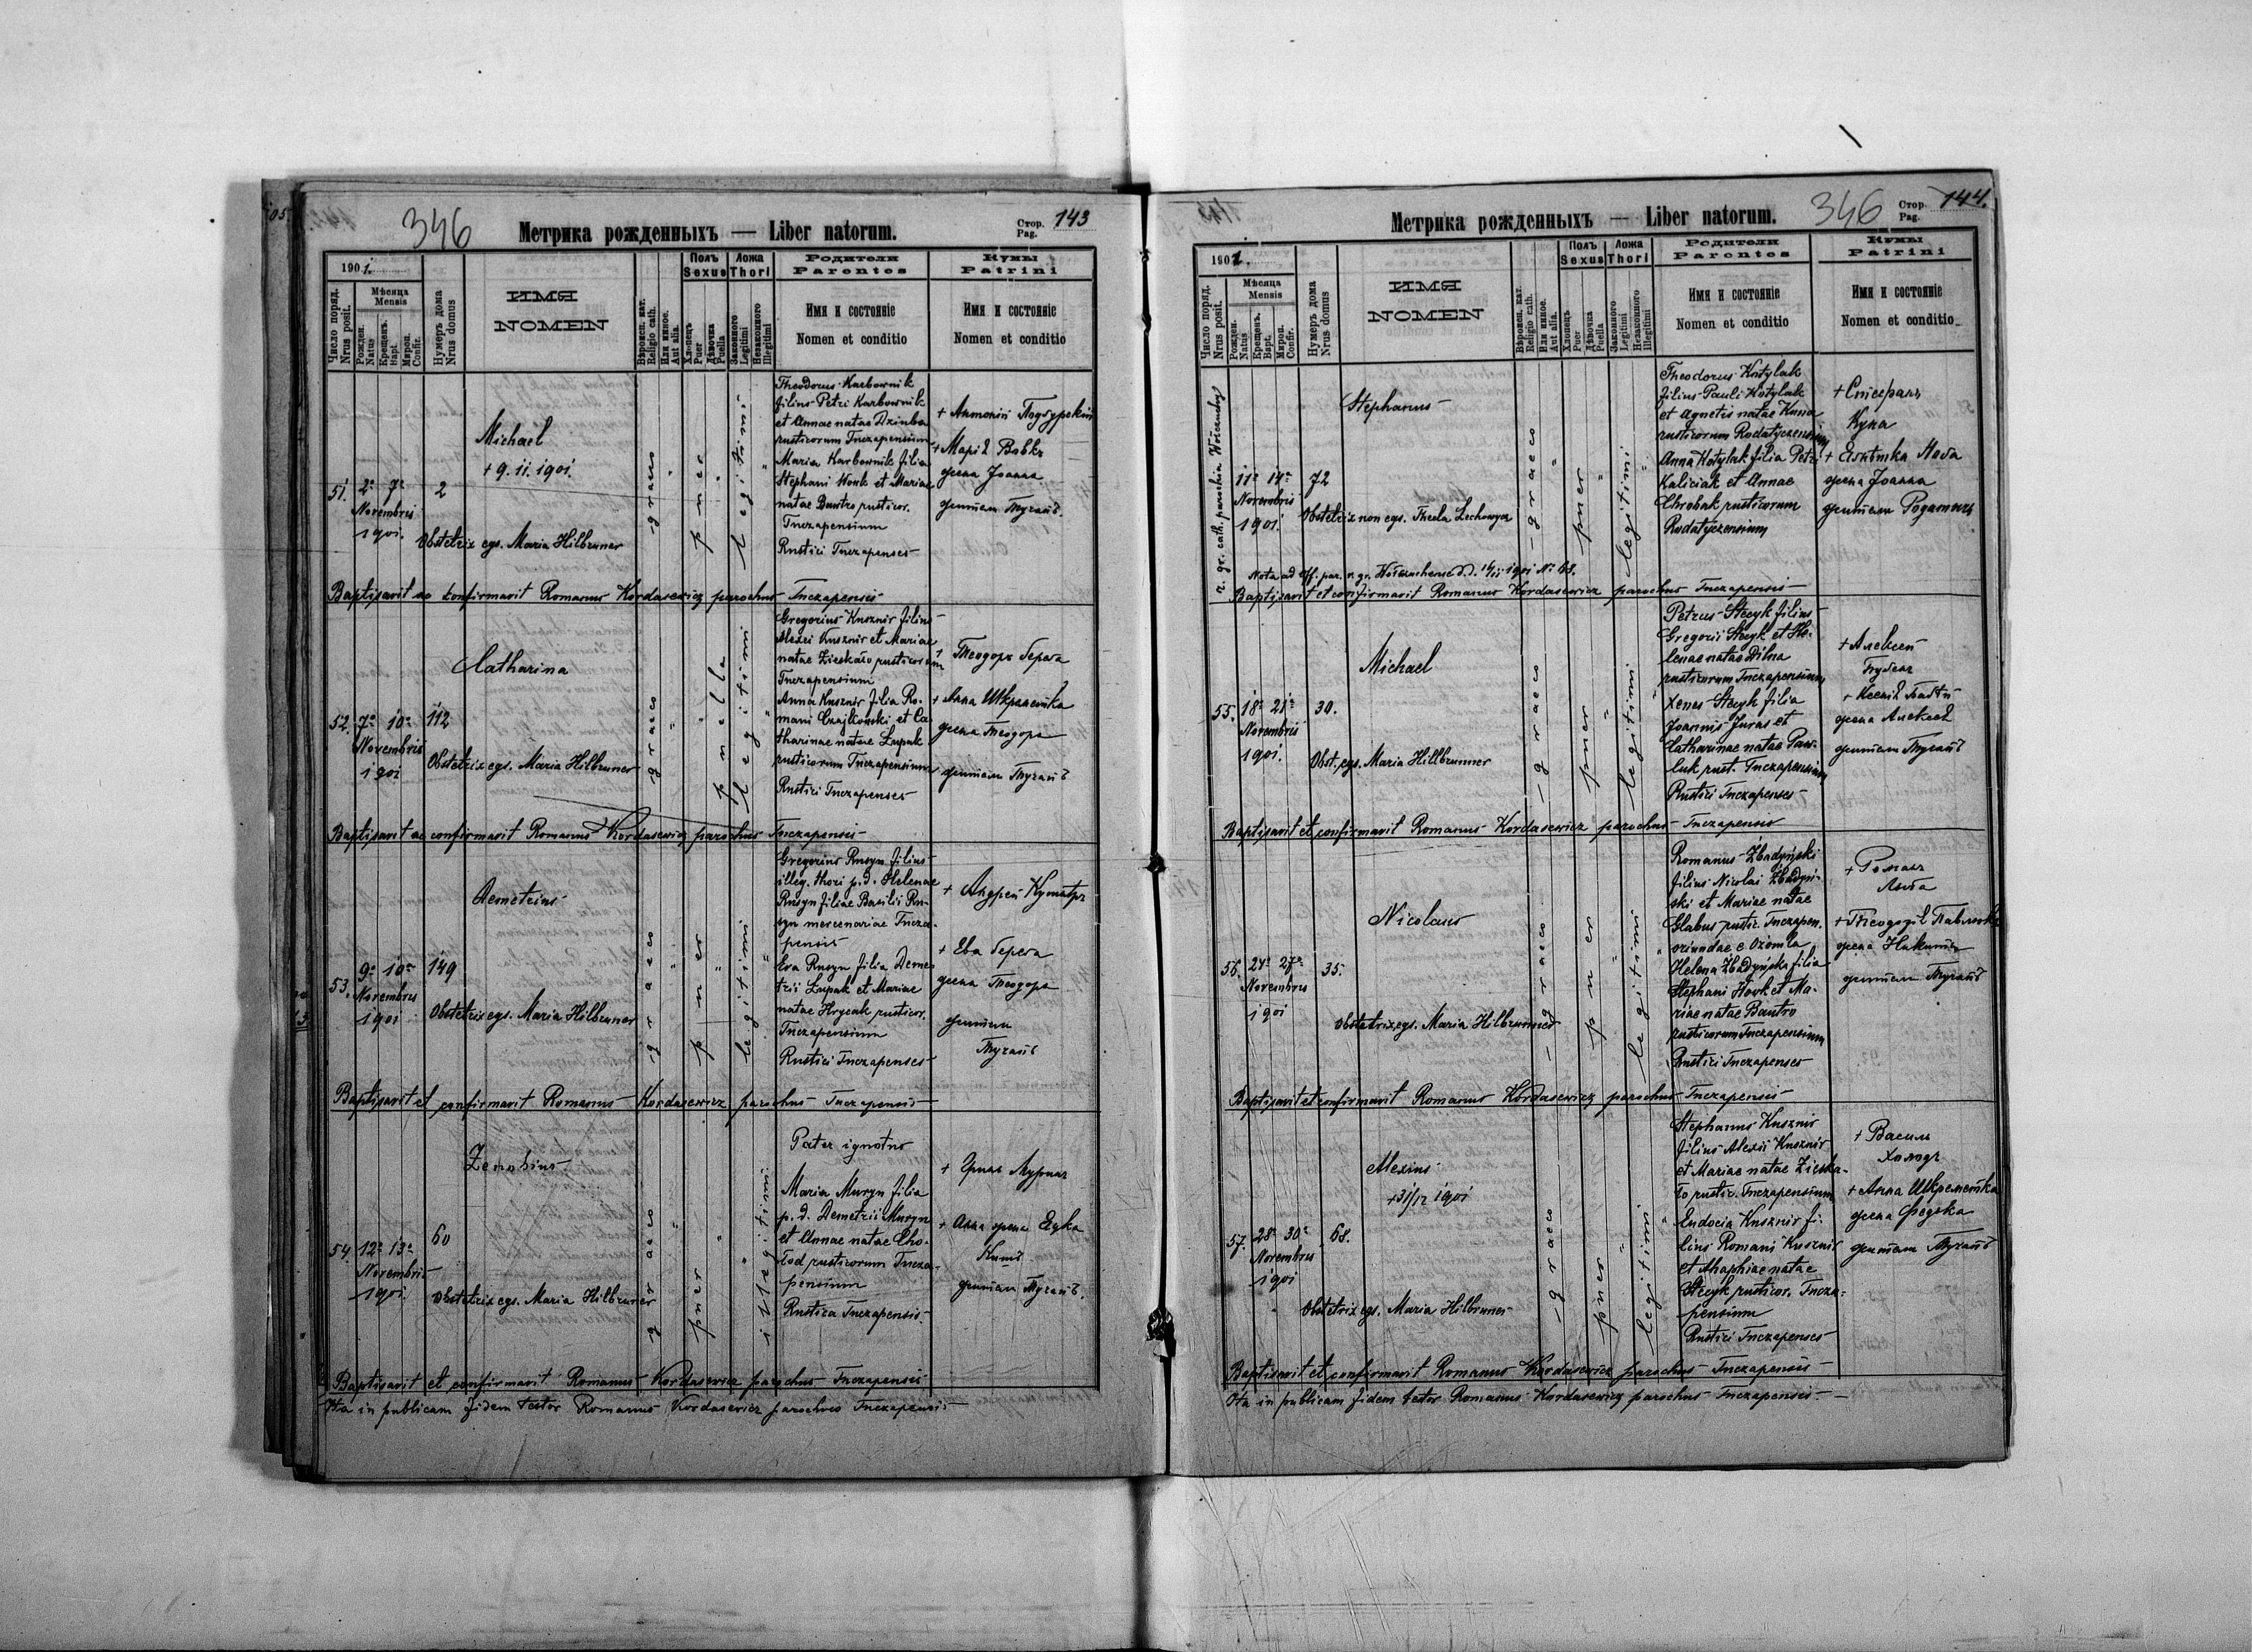 346
Метрика рожденныхъ — Liber natorum.
Стор. Pag. 143
1901.
Число поряд. Nrus posit.
Мѣсяца Mensis
Рожден. Natus
Крещенъ. Bapt.
Мѵроп. Confir.
Нумеръ дома Nrus domus
ИМЯ
NOMEN
Вѣроисп. кат. Religio cath.
Или инное. Aut alia.
Полъ Sexus
Хлопецъ Puer
Дѣвочка Puella
Ложа Thori
Законного Legitimi
Незаконного Illegitimi
Родители
Parentes
Имя и состояніе
Nomen et conditio
Кумы
Patrini
Имя и состояніе
Nomen et conditio
51. 2a 7a
Novembris
1901.
2
Michael
+ 9. 11. 1901.
Obstetrix egs. Maria Hilbruner
graeco
puer
legitimi
Theodorus Karbownik
filius Petri Karbownik
et Annae natae Dziuba
rusticorum Tuczapensium
Maria Karbownik filia
Stephani Wonk et Mariae
natae Buntro rusticor.
Tuczapensium
Rustici Tuczapenses
+ Антоній
+ Марія Вовкъ
жена Іоанна
жители Тучапъ.
Baptisavit ac confirmavit Romanus Kordasewicz parochus Tuczapensis
52. 7a 10a
Novembris
1901
112
Catharina
Obstetrix egs. Maria Hilbruner
graeco
puella
legitimi
Gregorius Kusznir filius
Alexii Kusznir et Mariae
natae Zieskało rusticorum
Tuczapensium
Anna Kusznir filia Ro-
mani Czajkowski et Ca
tharinae natae Łupak
rusticorum Tuczapensium
Rustici Tuczapenses
+ Теодоръ Береза
+ Анна
жена Теодора
жители Тучапъ
Baptisavit ac confirmavit Romanus Kordasewicz parochus Tuczapensis
53. 9a 10a
Novembris
1901
149
Demetrius
Obstetrix egs. Maria Hilbruner
graeco
puer
legitimi
Gregorius Rusyn filius
illeg. thori p. d. Helenae
Rusyn filiae Basilii Ru-
syn mercenariae Tucza-
pensis
Eva Rusyn filia Deme
trii Łupak et Mariae
natae Hrycak rusticor.
Tuczapensium
Rustici Tuczapenses
+ Андрей
+ Ева Береза
жена Теодора
жители
Тучапъ
Baptisavit et confirmavit Romanus Kordasewicz parochus Tuczapensis
54. 12a 13a
Novembris
1901.
60
Zenobius
Obstetrix egs. Maria Hilbruner
graeco
puer
illegitimi
Pater ignotus
Maria Muryn filia
p. d. Demetrii Muryn
et Annae natae Cho-
łod rusticorum Tucza-
pensium
Rustica Tuczapensis
+
+ Анна жена
жители Тучапъ.
Baptisavit et confirmavit Romanus Kordasewicz parochus Tuczapensis
Ita in publicam fidem testor Romanus Kordasewicz parochus Tuczapensis
Метрика рожденныхъ — Liber natorum.
346
Стор. Pag. 144.
1901.
Число поряд. Nrus posit.
Мѣсяца Mensis
Рожден. Natus
Крещенъ. Bapt.
Мѵроп. Confir.
Нумеръ дома Nrus domus
ИМЯ
NOMEN
Вѣроисп. кат. Religio cath.
Или инное. Aut alia.
Полъ Sexus
Хлопецъ Puer
Дѣвочка Puella
Ложа Thori
Законного Legitimi
Незаконного Illegitimi
Родители
Parentes
Имя и состояніе
Nomen et conditio
Кумы
Patrini
Имя и состояніе
Nomen et conditio
r. gr. cath. parochia
11a 14a
Novembris
1901.
72
Stephanus
Obstetrix non egs. Thecla Lechowycz
graeco
puer
legitimi
Theodorus Kotylak
filius Pauli Kotylak
et Agnetis natae Kuna
rusticorum Rodatyczensium
Anna Kotylak filia Petri
Kaliciak et Annae
Chrobak rusticorum
Rodatyczensium
+ Стефанъ
Кука
жена Іоанна
жители
Nota ad off. par. r. gr. d. d. 14/11 1901 No 68.
Baptisavit et confirmavit Romanus Kordasewicz parochus Tuczapensis
55. 18a 21a
Novembris
1901.
30.
Michael
Obst. egs. Maria Hillbrunner
graeco
puer
legitimi
Petrus Stecyk filius
Gregorii Stecyk et He-
lenae natae Dilna
rusticorum Tuczapensium
Xenes Stecyk filia
Joannis Juras et
Catharinae natae Paw-
luk rust. Tuczapensium
Rustici Tuczapenses
+ Алексей
+ Ксенія
жена Алексея
жители Тучапъ
Baptisavit et confirmavit Romanus Kordasewicz parochus Tuczapensis
56. 24a 27a
Novembris
1901
35.
Nicolaus
Obstetrix egs. Maria Hilbrunner
graeco
puer
legitimi
Romanus Zbadyński
filius Nicolai Zbadyń-
ski et Mariae natae
Głabus rustic. Tuczapen.
oriundae e Ożomla
Helena Zbadyńska filia
Stephani Hovk et Ma-
riae natae Bantro
rusticorum Tuczapensium
Rustici Tuczapenses
+ Романъ
+ Теодозія
жена Никиты
жители Тучапъ
Baptisavit et confirmavit Romanus Kordasewicz parochus Tuczapensis
57. 28a 30a
Novembris
1901
68.
Alexius
+ 31/12 1901
Obstetrix egs. Maria Hilbruner
graeco
puer
legitimi
Stephanus Kusznir
filius Alexii Kusznir
et Mariae natae Zieska-
ło rustic. Tuczapensium
Eudocia Kusznir fi-
lius Romani Kusznir
et Ahaphiae natae
Stecyk rusticor. Tucza-
pensium
Rustici Tuczapenses
+ Василь
Холодъ
+ Анна
жена Федька
жители Тучапъ
Baptisavit et confirmavit Romanus Kordasewicz parochus Tuczapensis
Ita in publicam fidem testor Romanus Kordasewicz parochus Tuczapensis